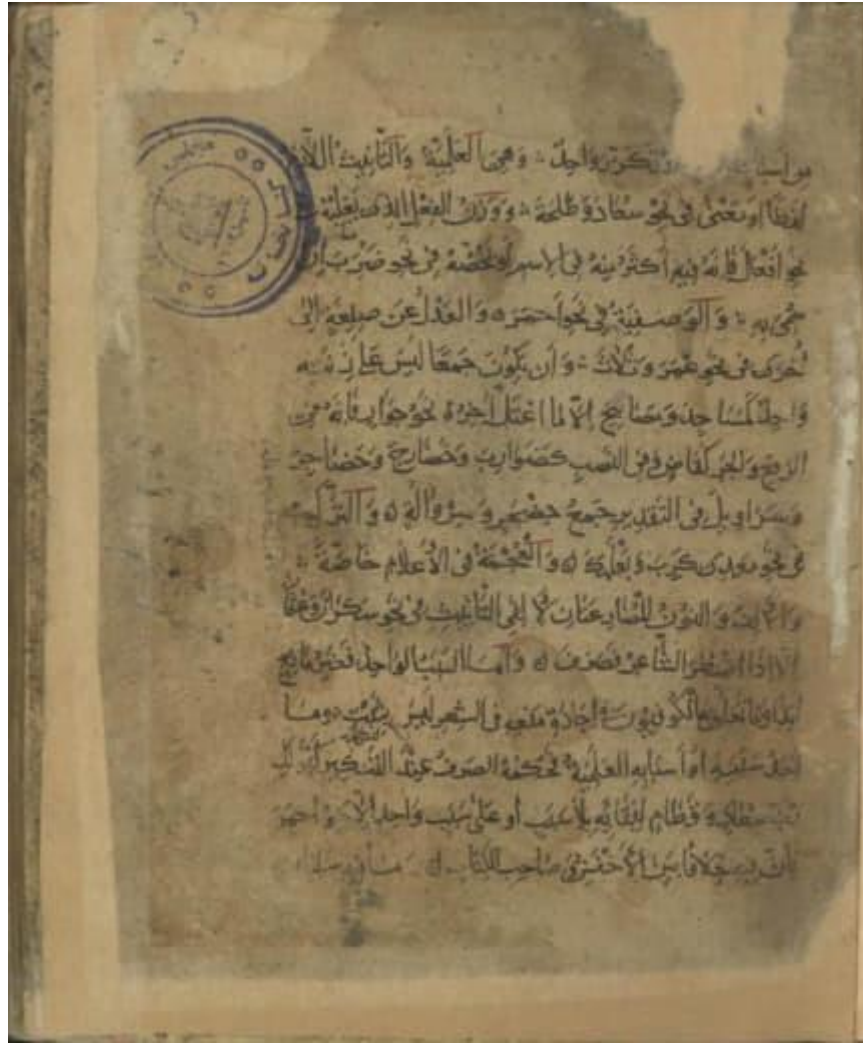 من أسباب وتكرر واحد وهي العلمية والتأنيث اللازم
لفظا أو معنى في نحو سعاد وطلحة ووزن الفعل الذي يغلبه في
نحو أفعل فإنه فيه أكثر منه في الاسم أو يخصه في نحو ضرب إن
سمي به والوصفية في نحو أحمر والعدل عن صيغة إلى
أخرى في نحو عمر وثلاث وأن يكون جمعا ليس على زنته
واحد كمساجد ومصابيح إلا ما اعتل آخره نحو جوار فإنه في
الرفع والجر كقاض وفي النصب كضوارب وحضاجر
وسراويل في التقدير جمع حضجر وسروالة والتركيب
في نحو معدي كرب وبعلبك والعجمة في الأعلام خاصة
والألف والنون المضارعتان لألفي التأنيث في نحو سكران وعثمان
إلا إذا اضطر الشاعر فصرف وأما السبب الواحد فغير مانع
أبدا وما تعلق به الكوفيون في إجازة منعه في الشعر ليس بثبت وما
أحد سببيه أو أسبابه العلمية فحكمه الصرف عند التنكير كقولك
رب سعاد وقطام لبقائه بلا سبب أو على سبب واحد إلا نحو أحمر
فإن فيه خلافا بين الأخفش وصاحب الكتاب